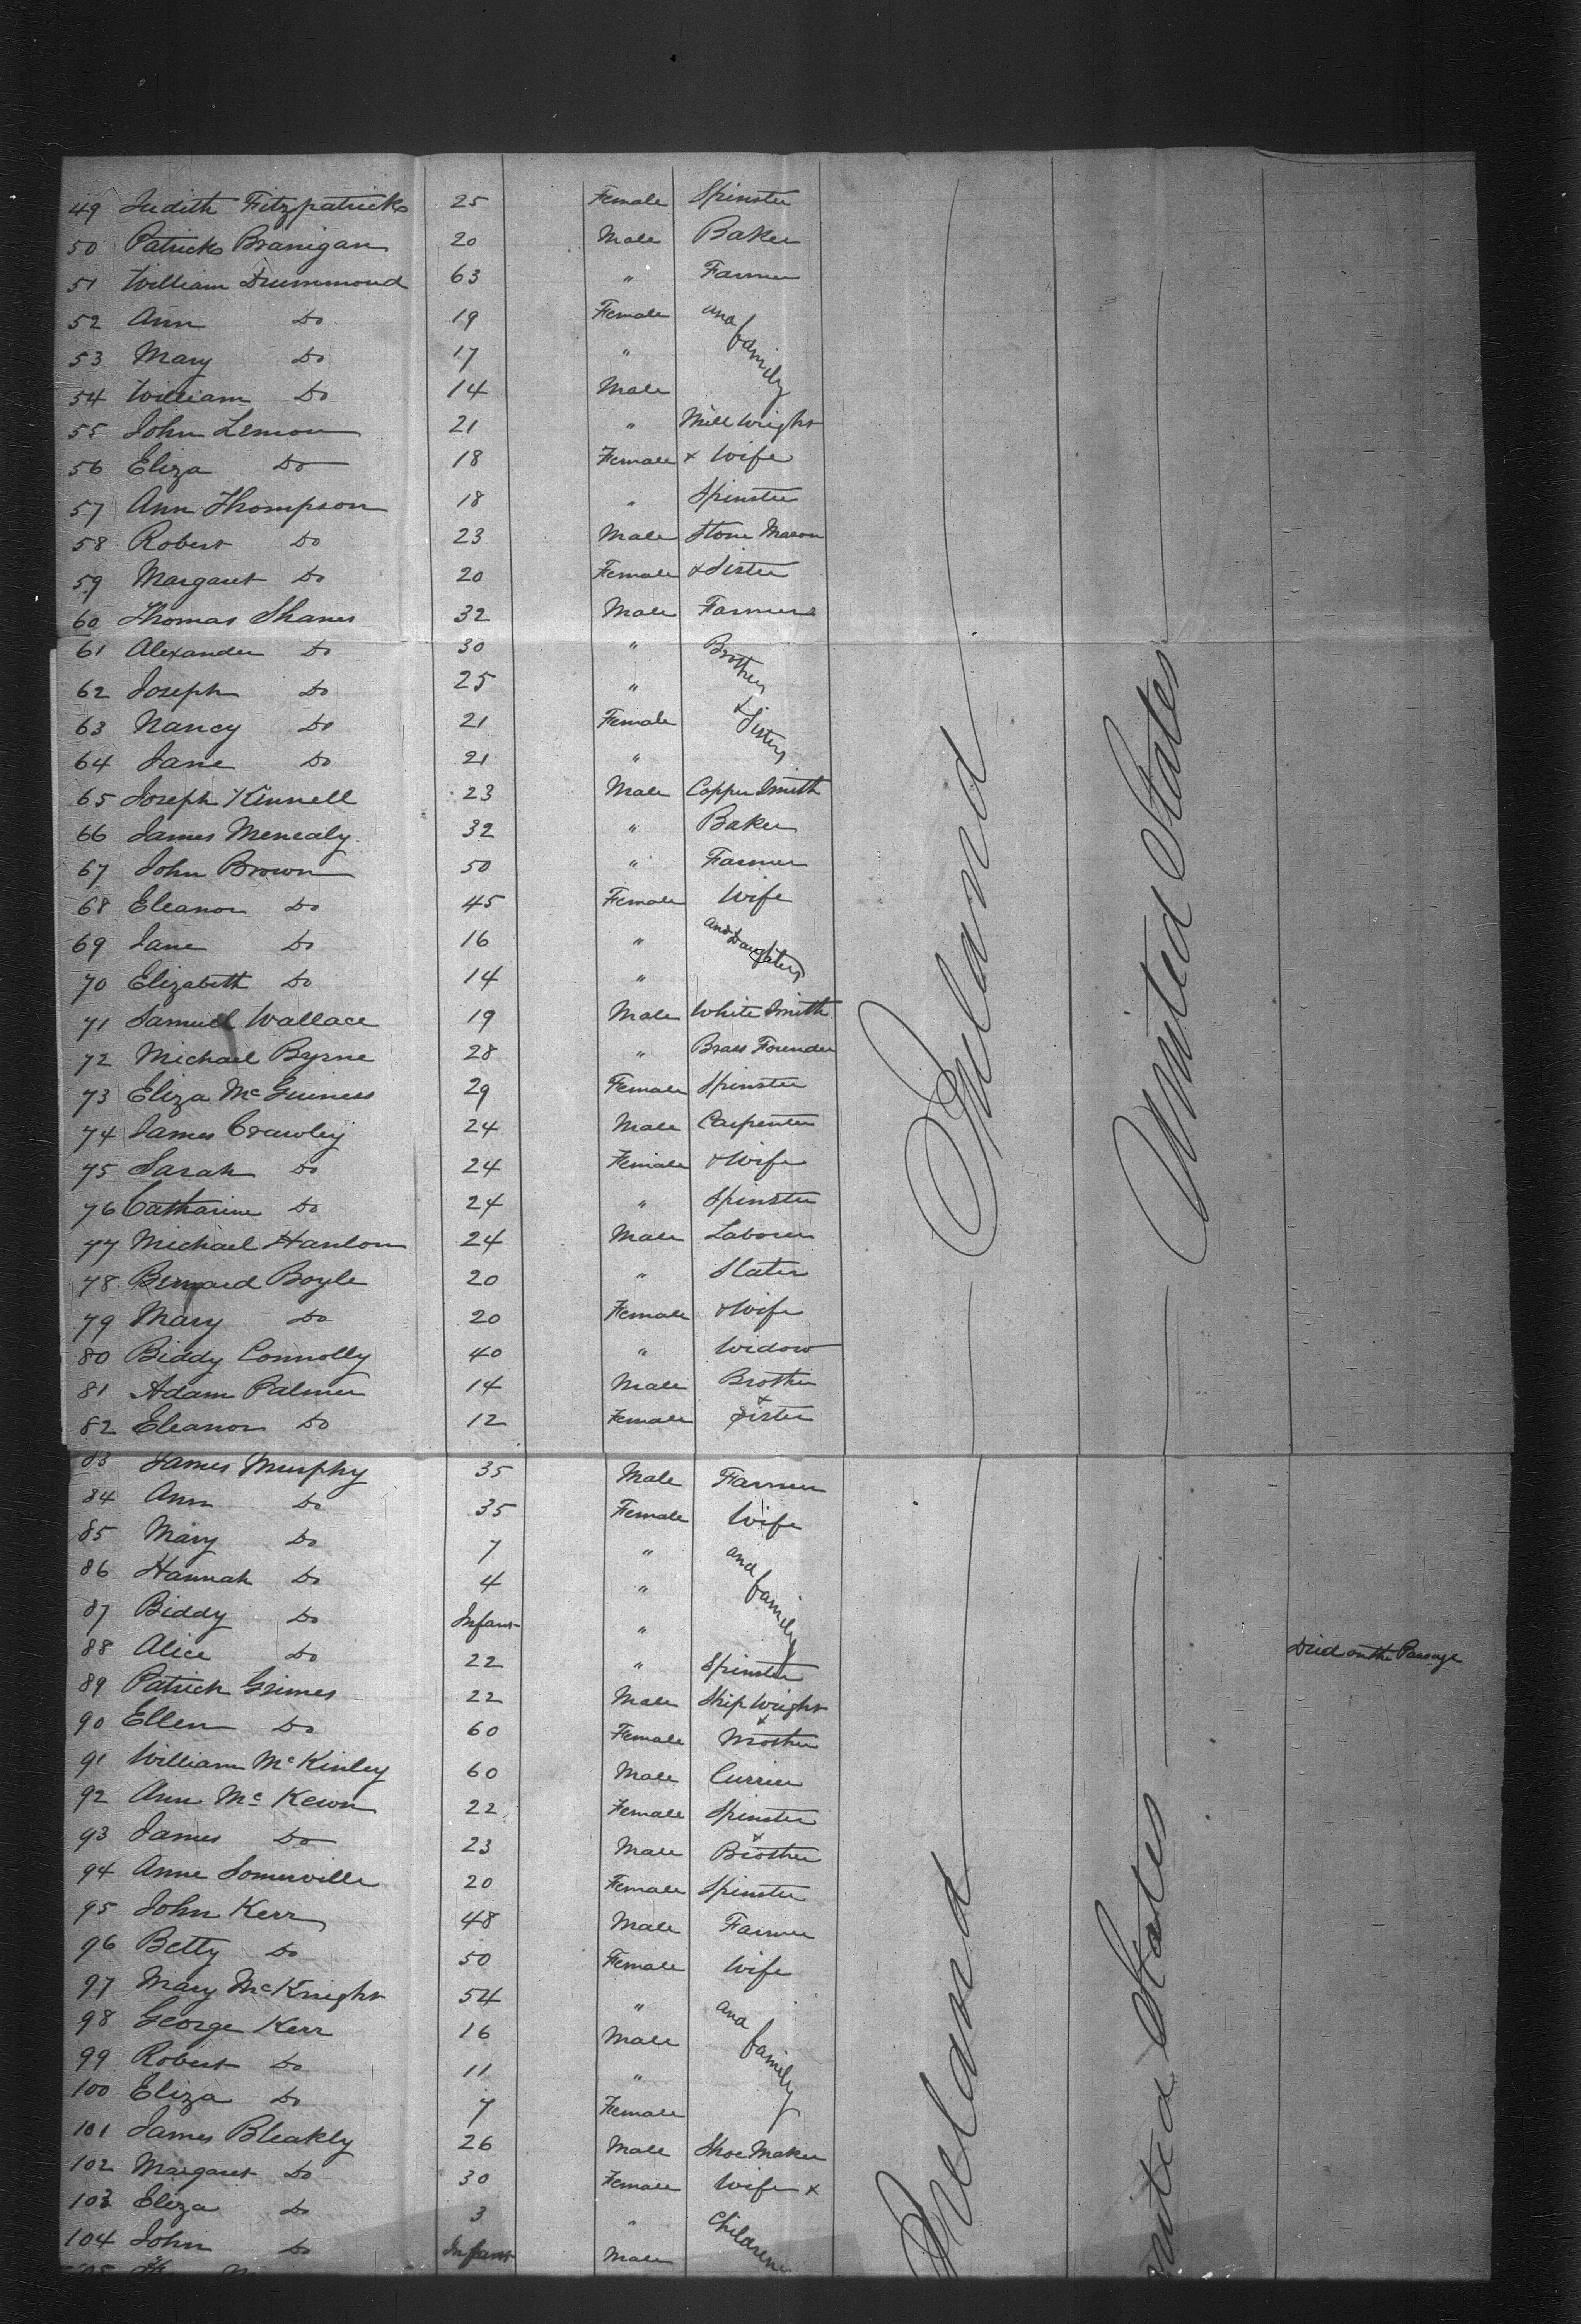 49 Judith Fitzpatrick 25 Female Spinster
50 Patrick Branigan 20 Male Baker
51 William Drummond 63 " Farmer
52 Ann Do 19 Female and
53 Mary Do 17 " family
54 William Do 14 Male
55 John Lemon 21 " Mill Wright
56 Eliza Do 18 Female + Wife
57 Ann Thompson 18 " Spinster
58 Robert Do 23 Male Stone Mason
59 Margaret Do 20 Female & Sister
60 Thomas Shanes 32 Male Farmers
61 Alexander Do 30 " Brothers
62 Joseph Do 25 "
63 Nancy Do 21 Female & Sisters
64 Jane Do 21 "
65 Joseph Kinnell 23 Male Copper Smith
66 James Menealy 32 " Baker
67 John Brown 50 " Farmer
68 Eleanor Do 45 Female Wife
69 Jane Do 16 " and Daughters
70 Elizabeth Do 14 "
71 Samuel Wallace 19 Male White Smith
72 Michael Byrne 28 " Brass Founder
73 Eliza McGuiness 29 Female Spinster
74 James Crawley 24 Male Carpenter
75 Sarah Do 24 Female & Wife
76 Catharine Do 24 " Spinster
77 Michael Hanlon 24 Male Laborer
78 Bernard Boyle 20 " Slater
79 Mary Do 20 Female & Wife
80 Biddy Connolly 40 " Widow
81 Adam Palmer 14 Male Brother
82 Eleanor Do 12 Female & Sister
Ireland
United States
83 James Murphy 35 Male Farmer
84 Ann Do 35 Female Wife
85 Mary Do 7 " and
86 Hannah Do 4 " family
87 Biddy Do Infant "
88 Alice Do 22 " Spinster Died on the Passage
89 Patrick Grimes 22 Male Ship Wright
90 Ellen Do 60 Female & Mother
91 William McKinley 60 Male Currier
92 Ann McKewn 22 Female Spinster
93 James Do 23 Male & Brother
94 Anne Somerville 20 Female Spinster
95 John Kerr 48 Male Farmer
96 Betty Do 50 Female Wife
97 Mary McKnight 54 " and
98 George Kerr 16 Male family
99 Robert Do 11 "
100 Eliza Do 7 Female
101 James Bleakly 26 Male Shoe Maker
102 Margaret Do 30 Female Wife &
103 Eliza Do 3 " Children
104 John Do Infant Male
Ireland
United States